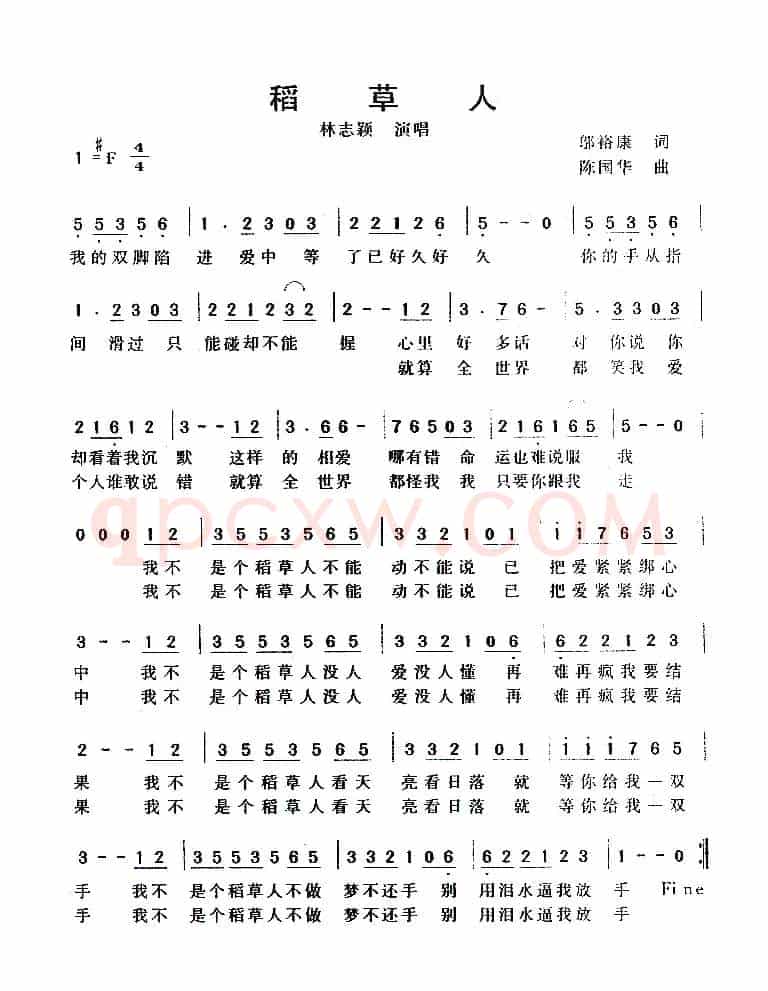 稻 草 人
林志颖 演唱
1=#F 4/4
邬裕康 词
陈国华 曲
5 5 3 5 6 | 1 . 2 3 0 3 | 2 2 1 2 6 | 5 - - 0 | 5 5 3 5 6 |
我的双脚陷 进 爱中 等 了已好久好 久 你的手从指
1 . 2 3 0 3 | 2 2 1 2 3 2 | 2 - - 1 2 | 3 . 7 6 - | 5 . 3 3 0 3 |
间 滑过 只 能碰却不能 握 心里 好 多话 对 你说 你
就算 全 世界 都 笑我 爱
2 1 6 1 2 | 3 - - 1 2 | 3 . 6 6 - | 7 6 5 0 3 | 2 1 6 1 6 5 | 5 - - 0 |
却看着我沉 默 这样 的 相爱 哪有错 命 运也难说服 我
个人谁敢说 错 就算 全 世界 都怪我 我 只要你跟我 走
qpcxw.com
0 0 0 1 2 | 3 5 5 3 5 6 5 | 3 3 2 1 0 1 | 1 1 7 6 5 3 |
我不 是个稻草人不能 动不能说 已 把爱紧紧绑心
我不 是个稻草人不能 动不能说 已 把爱紧紧绑心
3 - - 1 2 | 3 5 5 3 5 6 5 | 3 3 2 1 0 6 | 6 2 2 1 2 3 |
中 我不 是个稻草人没人 爱没人懂 再 难再疯我要结
中 我不 是个稻草人没人 爱没人懂 再 难再疯我要结
2 - - 1 2 | 3 5 5 3 5 6 5 | 3 3 2 1 0 1 | 1 1 1 7 6 5 |
果 我不 是个稻草人看天 亮看日落 就 等你给我一双
果 我不 是个稻草人看天 亮看日落 就 等你给我一双
3 - - 1 2 | 3 5 5 3 5 6 5 | 3 3 2 2 1 0 6 | 6 2 2 1 2 3 | 1 - - 0 :||
手 我不 是个稻草人不做 梦不还手 别 用泪水逼我放 手 Fine
手 我不 是个稻草人不做 梦不还手 别 用泪水逼我放 手